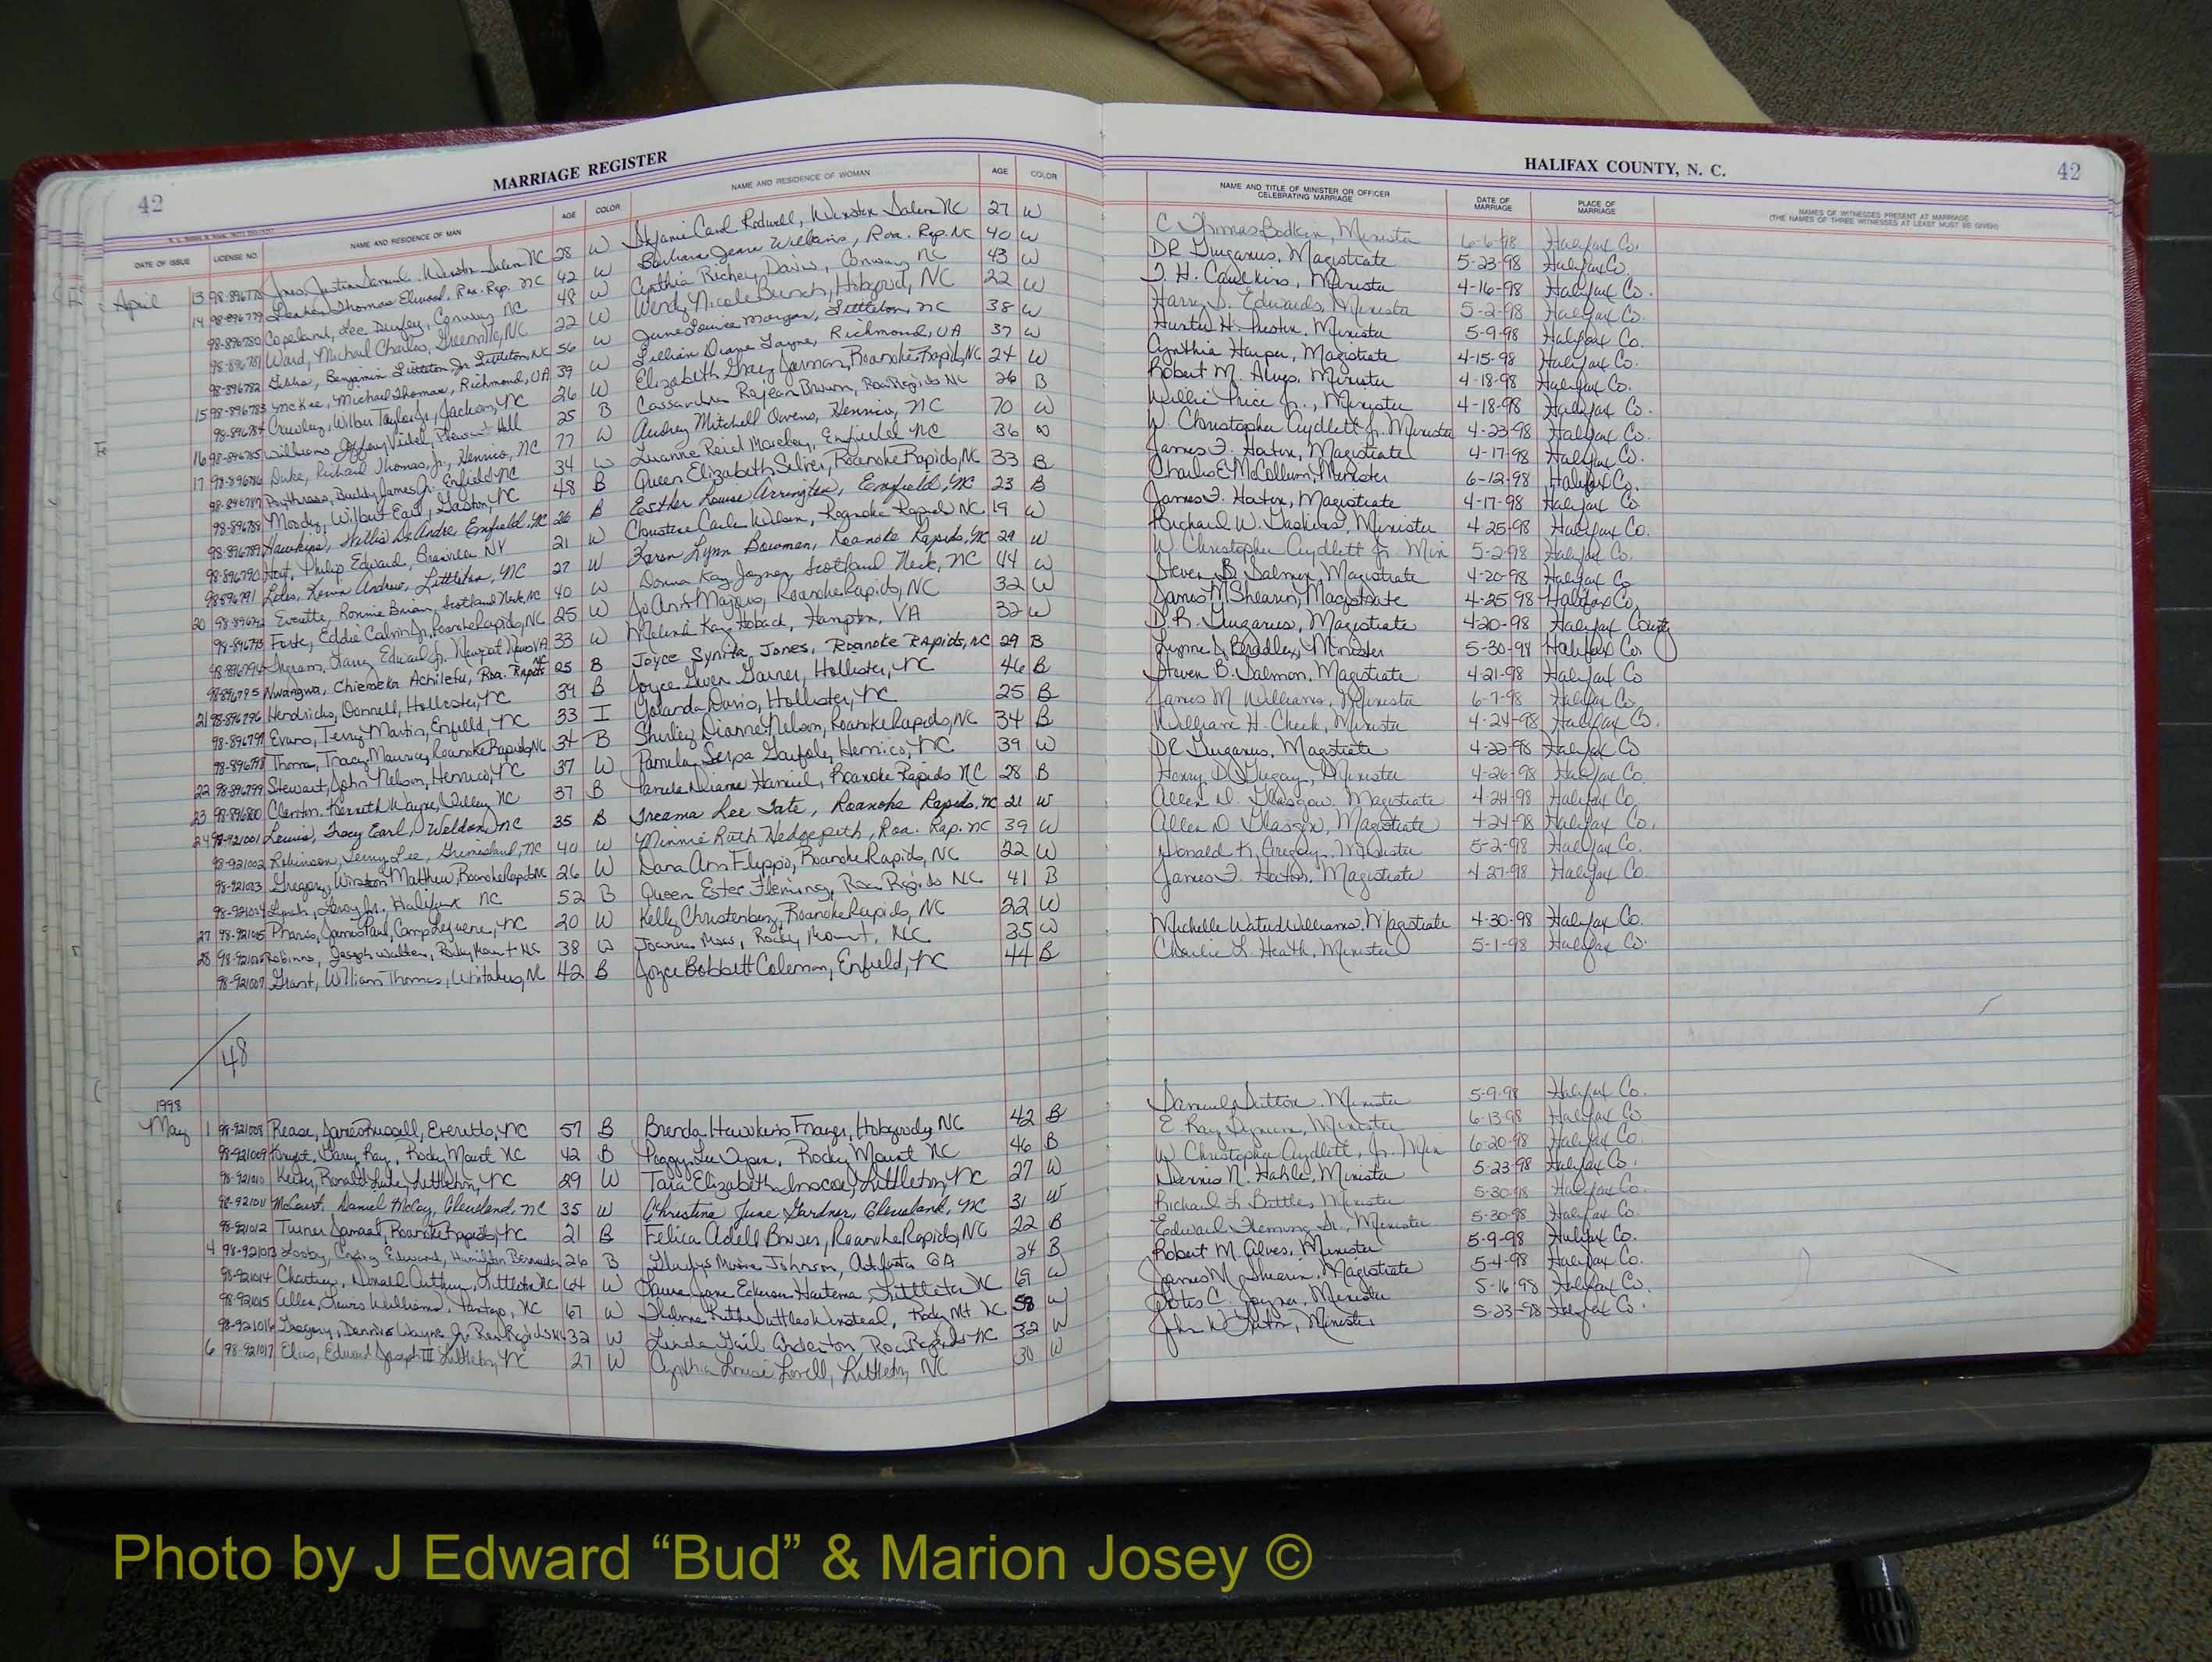 42
MARRIAGE REGISTER
HALIFAX COUNTY, N. C.
42
DATE OF ISSUE LICENSE NO. NAME AND RESIDENCE OF MAN AGE COLOR NAME AND RESIDENCE OF WOMAN AGE COLOR NAME AND TITLE OF MINISTER OR OFFICER CELEBRATING MARRIAGE DATE OF MARRIAGE PLACE OF MARRIAGE NAMES OF WITNESSES PRESENT AT MARRIAGE (THE NAMES OF THREE WITNESSES AT LEAST MUST BE GIVEN)
April 13 98-896778 Justin Samuel, Winston Salem NC 28 W Stefanie Carol Rodwell, Winston Salem NC 27 W C Thomas Bodkin, Minister 6-6-98 Halifax Co.
14 98-896779 Thomas Elwood, Roa. Rap. NC 42 W Barbara Jeane Williams, Roa. Rap. NC 40 W DR Gurganus, Magistrate 5-23-98 Halifax Co.
98-896780 Copeland, Lee Conway NC 48 W Cynthia Richey Davis, Conway NC 43 W Minister 4-16-98 Halifax Co.
98-896781 Ward, Michael Charles, Greenville, NC 22 W Wendy Nicole Bunch, Hobgood, NC 22 W Harry D. Edwards, Minister 5-2-98 Halifax Co.
98-896782 Benjamin Littleton Jr. Littleton, NC 56 W June Louise Morgan, Littleton, NC 38 W Minister 5-9-98 Halifax Co.
15 98-896783 McKee, Michael Thomas, Richmond, VA 39 W Lillian Diane Layne, Richmond, VA 37 W Cynthia Harper, Magistrate 4-15-98 Halifax Co.
98-896784 Crawley, Wilbur Taylor Jr., Jackson, NC 26 W Elizabeth Gray Jarman, Roanoke Rapids, NC 24 W Robert M. Alves, Minister 4-18-98 Halifax Co.
16 98-896785 Williams, Jeffery Vidal, Pleasant Hill 25 B Cassandra Rajean Brown, Roa Rapids NC 26 B Willie Price Jr., Minister 4-18-98 Halifax Co.
17 98-896786 Duke, Richard Thomas, Jr., Henrico, NC 77 W Audrey Mitchell Owens, Henrico, NC 70 W W. Christopher Aydlett Jr. Minister 4-23-98 Halifax Co.
98-896787 Buddy James Jr. Enfield NC 34 W Luanne Reid Moseley, Enfield NC 36 W James F. Hatem, Magistrate 4-17-98 Halifax Co.
98-896788 Moody, Wilbur Earl, Gaston, NC 48 B Queen Elizabeth Silver, Roanoke Rapids, NC 33 B Charlie E McCollum, Minister 6-12-98 Halifax Co.
98-896789 Hawkins, Willis DeAndre Enfield, NC 26 B Esther Louise Arrington, Enfield, NC 23 B James F. Hatem, Magistrate 4-17-98 Halifax Co
98-896790 Philip Edward, NY 21 W Christine Wilson, Roanoke Rapids NC 19 W Richard W. Gaskins, Minister 4-25-98 Halifax Co.
98-896791 Liles, Kevin Andrew, Littleton, NC 27 W Karen Lynn Bowman, Roanoke Rapids, NC 29 W W. Christopher Aydlett Jr. Min 5-2-98 Halifax Co.
20 98-896792 Everette, Ronnie Brian, Scotland Neck, NC 40 W Donna Kay Joyner, Scotland Neck, NC 44 W Steven B. Salmon, Magistrate 4-20-98 Halifax Co
98-896793 Eddie Calvin Jr. Roanoke Rapids, NC 25 W Jo Ann Majors, Roanoke Rapids, NC 32 W James M Shearin, Magistrate 4-25 98 Halifax Co,
98-896794 Ingram, Larry Edward Jr. Newport News VA 33 W Melinda Kay Hoback, Hampton, VA 32 W D.R. Gurganus, Magistrate 4-20-98 Halifax County
98-896795 Nwangwa, Chiemeka Achilefu, Roa. Rapids NC 25 B Joyce Synita Jones, Roanoke Rapids, NC 29 B Bradley, Minister 5-30-98 Halifax Co
21 98-896796 Hendricks, Donnell, Hollister, NC 39 B Joyce Gwen Garner, Hollister, NC 46 B Steven B. Salmon, Magistrate 4-21-98 Halifax Co
98-896797 Evans, Terry Martin, Enfield, NC 33 I Yolanda Davis, Hollister, NC 25 B James M Williams, Minister 6-7-98 Halifax Co.
98-896798 Tracy Maurice, Roanoke Rapids, NC 34 B Shirley Dianne Nelson, Roanoke Rapids, NC 34 B William H. Cheek, Minister 4-24-98 Halifax Co.
22 98-896799 Stewart, John Nelson, Henrico, NC 37 W Pamela Serpa Henrico, NC 39 W DR Gurganus, Magistrate 4-22-98 Halifax Co
23 98-896800 Clanton, Kenneth Wayne, NC 37 B Pamela Diane Roanoke Rapids NC 28 B Henry D. Minister 4-26-98 Halifax Co.
24 98-921001 Lewis, Tracy Earl, Weldon, NC 35 B Treama Lee Tate, Roanoke Rapids, NC 21 W Allen D. Glasgow, Magistrate 4-24-98 Halifax Co,
98-921002 Robinson, Jerry Lee, Grimesland, NC 40 W Minnie Ruth Hedgepeth, Roa. Rap. NC 39 W Allen D Glasgow, Magistrate 4-24-98 Halifax Co.
98-921003 Gregory, Winston Matthew, Roanoke Rapids NC 26 W Dana Ann Flippio, Roanoke Rapids, NC 22 W Donald K. Gregory, Minister 5-2-98 Halifax Co.
98-921004 Lynch, Leroy Jr. Halifax NC 52 B Queen Ester Fleming, Roa Rapids NC 41 B James F. Hatem, Magistrate 4 27-98 Halifax Co
27 98-921005 Pharis, James Paul, Camp Lejeune, NC 20 W Kelly Christenbery, Roanoke Rapids, NC 22 W
28 98-921006 Robinson, Joseph Walter, Rocky Mount NC 38 W Joanne Moss, Rocky Mount, NC 35 W Michelle Waters Williams, Magistrate 4-30-98 Halifax Co.
98-921007 Grant, William Thomas, Whitakers, NC 42 B Joyce Bobbitt Coleman, Enfield, NC 44 B Charlie L. Heath, Minister 5-1-98 Halifax Co.
48
1998
May 1 98-921008 Rease, James Russell, Everetts, NC 57 B Brenda Hawkins Hobgood, NC 42 B Samuel Sutton, Minister 5-9-98 Halifax Co.
98-921009 Knight, Garry Ray, Rocky Mount NC 42 B Peggy Lee Rocky Mount NC 46 B E. Ray Minister 6-13-98 Halifax Co
98-921010 Keeter, Ronald Luke, Littleton, NC 29 W Tara Elizabeth Inscoe, Littleton, NC 27 W W Christopher Aydlett, Jr. Min 6-20-98 Halifax Co
98-921011 McCourt, Daniel McCoy, Cleveland, NC 35 W Christina June Gardner, Cleveland, NC 31 W Dennis N. Hahle, Minister 5-23-98 Halifax Co.
98-921012 Turner Jamaal, Roanoke Rapids, NC 21 B Felica Adell Roanoke Rapids, NC 22 B Richard L Bottles, Minister 5-30-98 Halifax Co.
4 98-921013 Looby, Craig Edward, Hamilton Bermuda 26 B Gladys Johnson, Atlanta GA 24 B Edward Fleming Sr., Minister 5-30-98 Halifax Co
98-921014 Arthur, Littleton NC 64 W Jane Littleton NC 69 W Robert M. Alves, Minister 5-9-98 Halifax Co.
98-921015 Allen, Lewis Williams, Pantego, NC 67 W Ruth Suttles Winstead, Rocky Mt NC 58 W James M Shearin, Magistrate 5-4-98 Halifax Co.
98-921016 Gregory, Dennis Wayne Jr. Roa Rapids NC 32 W Linda Gail Anderton, Roa Rapids NC 32 W Otis C. Joyner, Minister 5-16-98 Halifax Co.
6 98-921017 Elias, Edward Joseph III Littleton, NC 27 W Cynthia Louise Lovell, Littleton, NC 30 W John Minister 5-23-98 Halifax Co.
Photo by J Edward “Bud” & Marion Josey ©